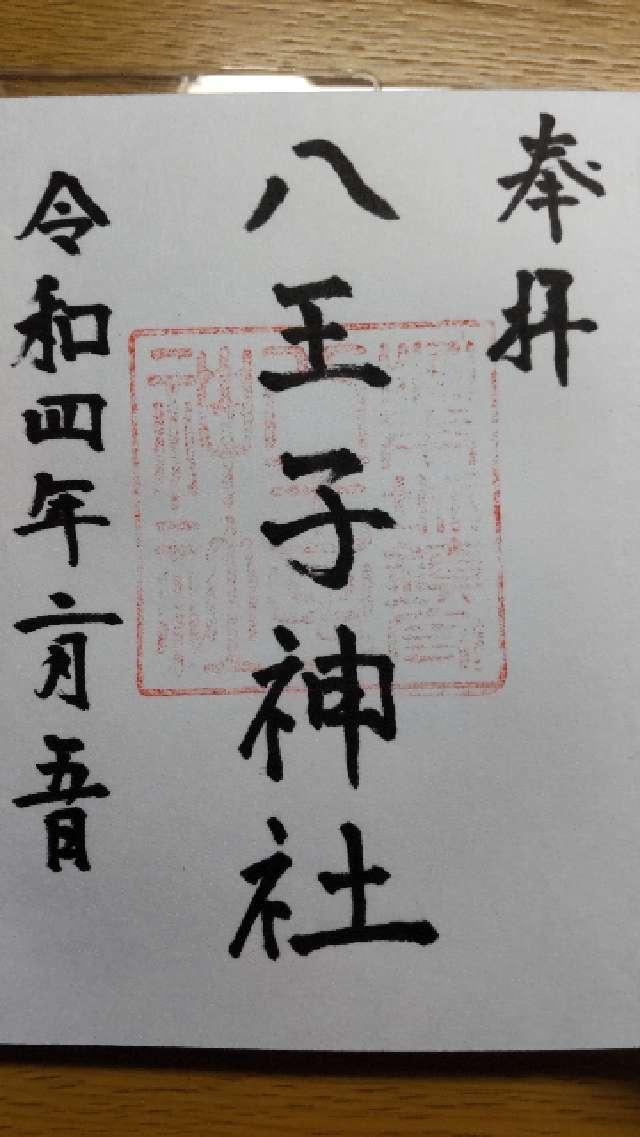 奉拝
八王子神社
令和四年二月五日